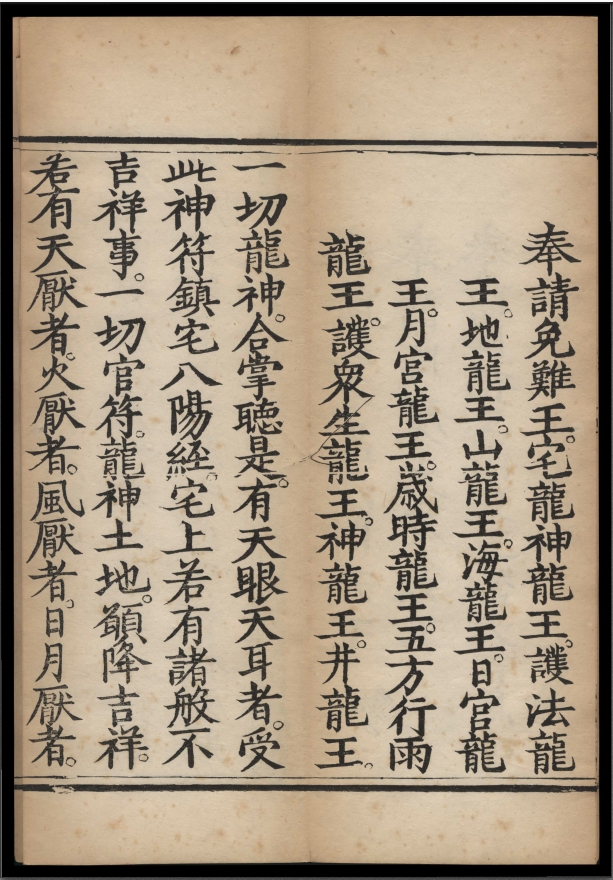 奉請免難王。宅龍神龍王。護法龍
王。地龍王。山龍王。海龍王。日宮龍
王。月宮龍王。歲時龍王。五方行雨
龍王。護衆生龍王。神龍王。井龍王。
一切龍神。合掌聽是。有天眼天耳者。受
此神符鎮宅八陽經。宅上若有諸般不
吉祥事。一切官符。龍神土地。願降吉祥。
若有天厭者。火厭者。風厭者。日月厭者。